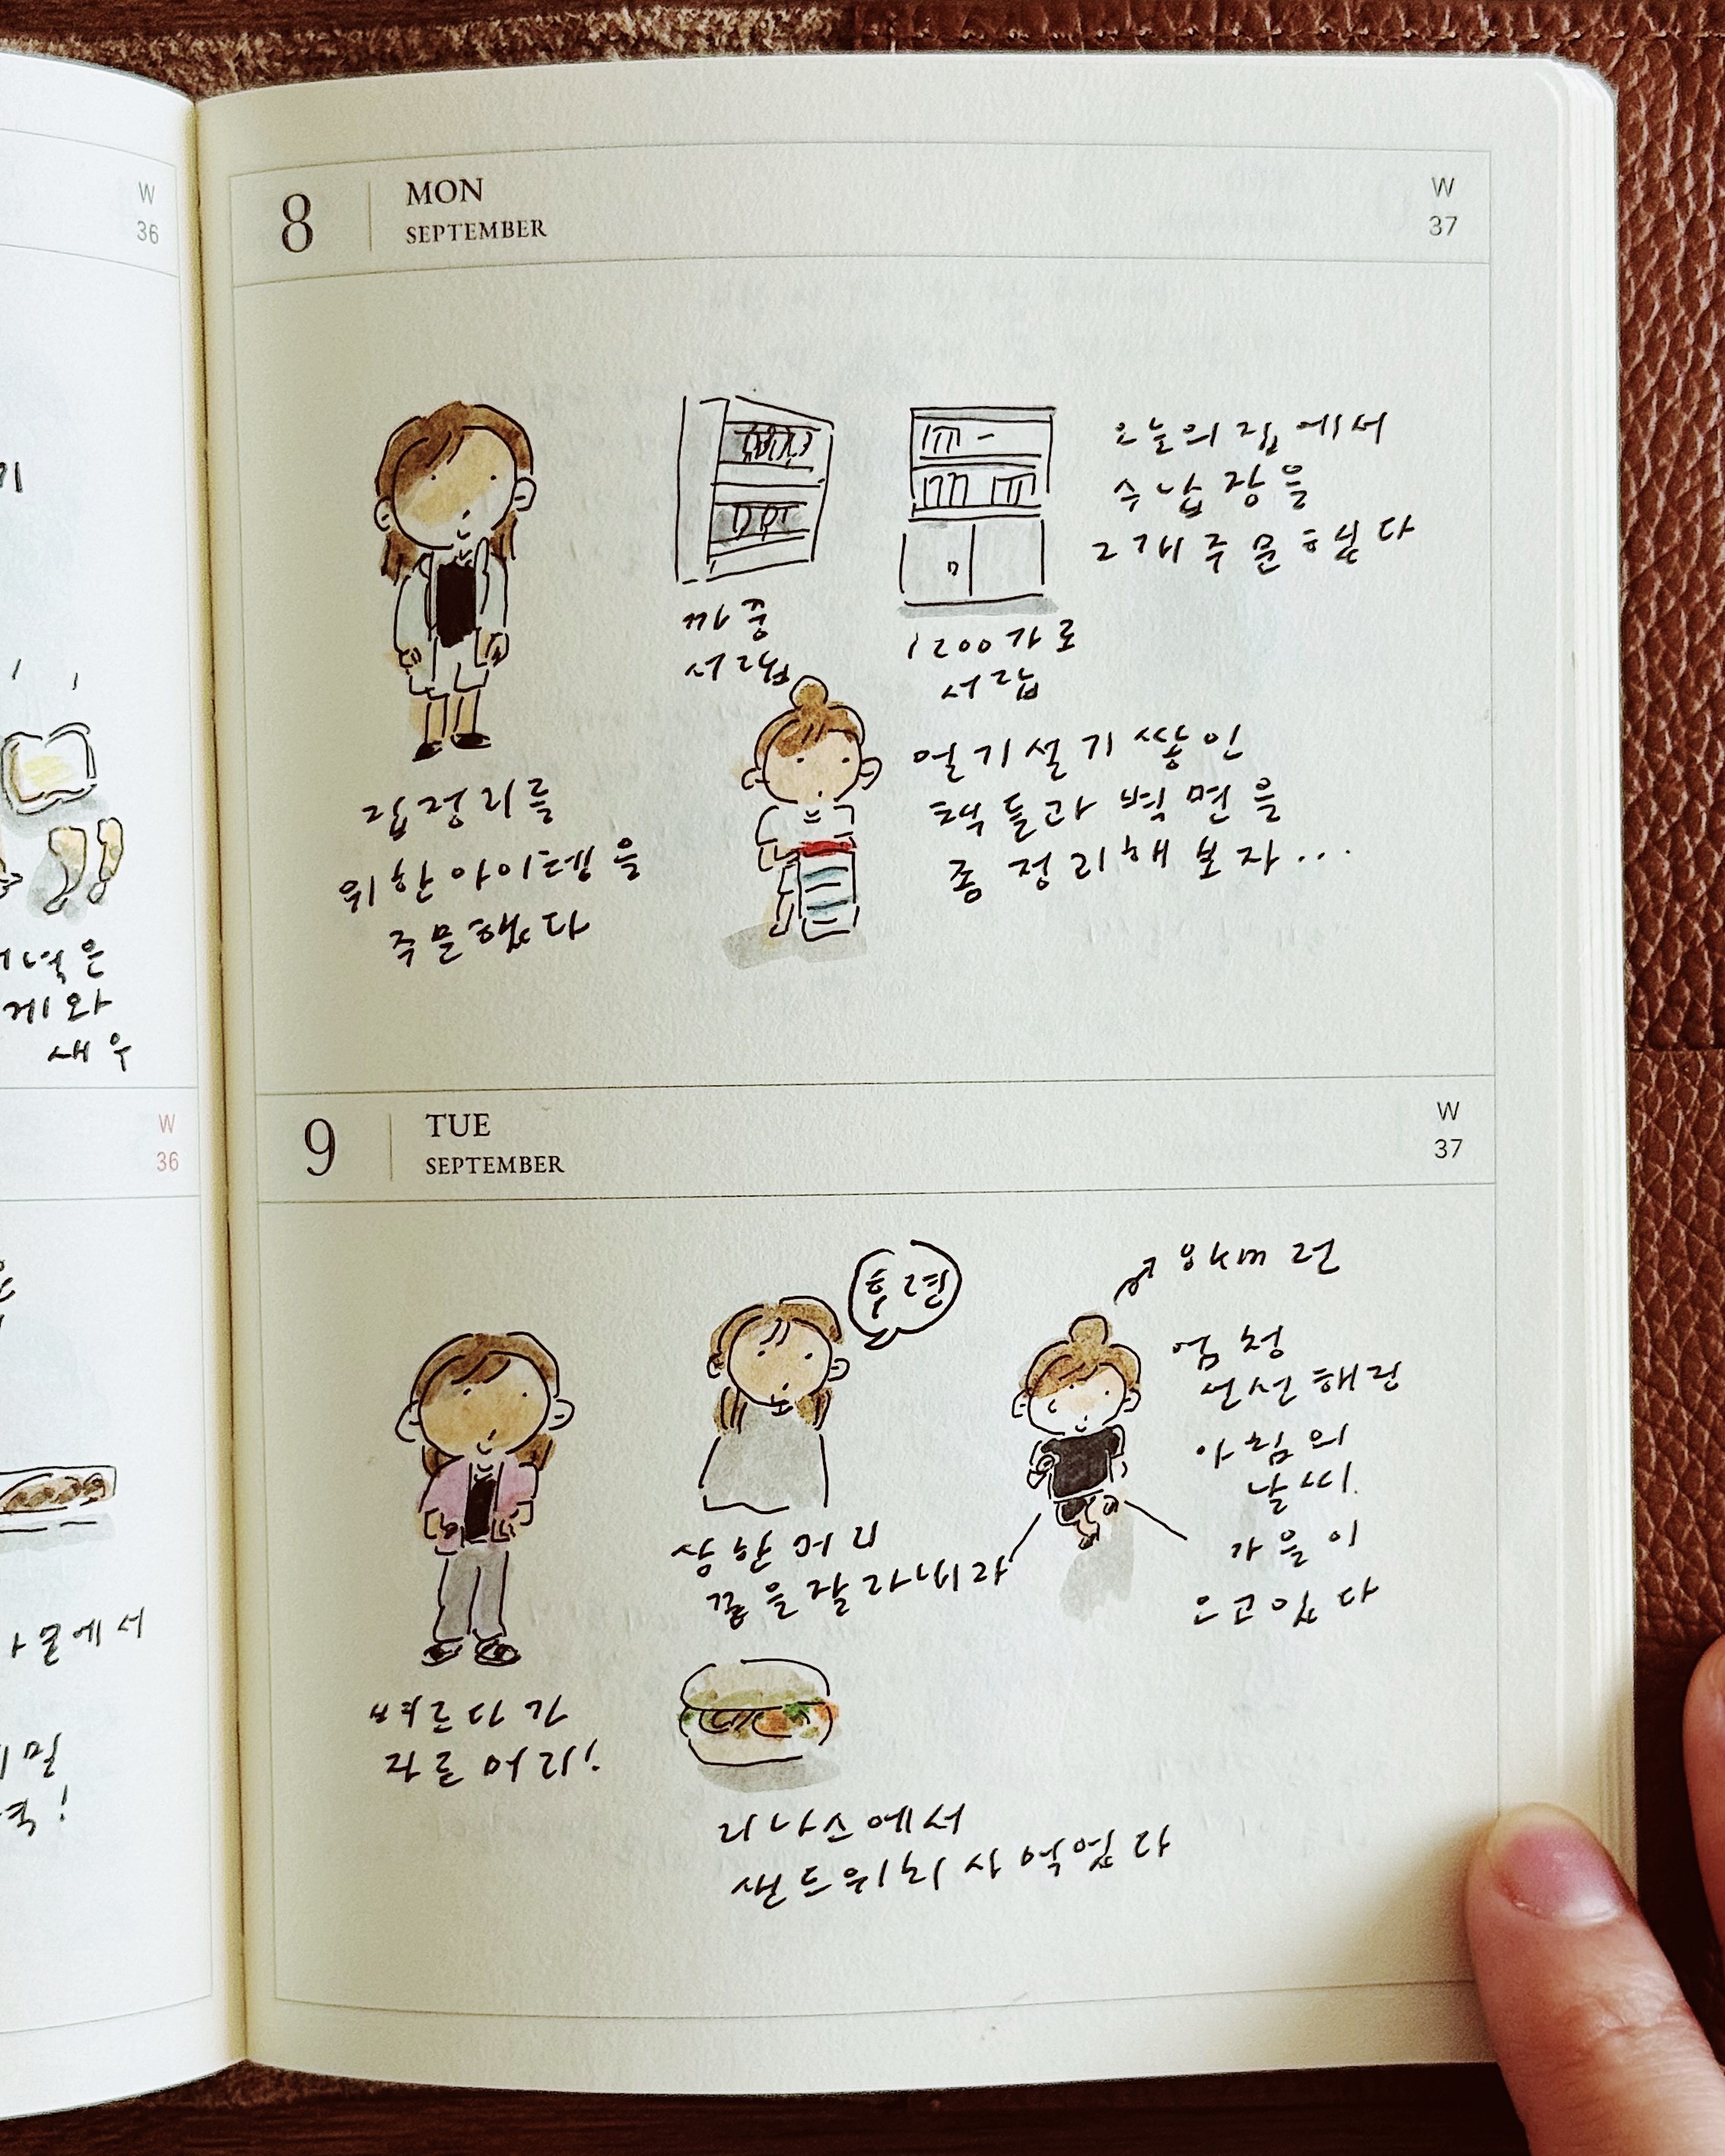 W
36
기
녁은
게와
새우
W
36
에서
8 MON
SEPTEMBER
W
37
집정리를
위한 아이템을
주문했다
서랍
1200가로
서랍
오늘의 집에서
수납장을
2개 주문했다
얼기설기 쌓인
책들과 벽면을
좀 정리해보자...
9 TUE
SEPTEMBER
W
37
벼르다가
자른 머리!
후련
상한 머리
끝을 잘라내다
런
엄청
선선해진
아침의
날씨.
가을이
오고있다
리나스에서
샌드위치 사먹었다